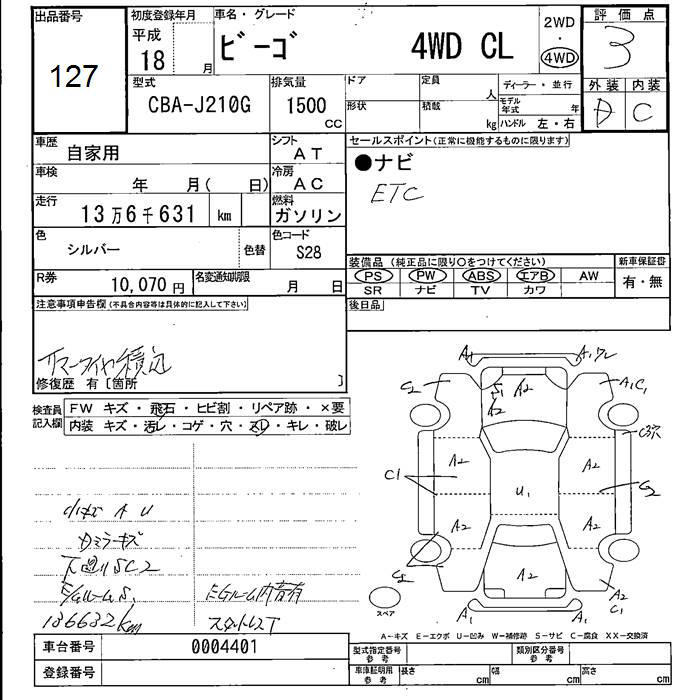 出品番号
127
初度登録年月
平成
18 月
車名・グレード
ビーゴ 4WD CL
2WD
・
4WD
評価点
3
外装 内装
D C
型式
CBA-J210G
排気量
1500
CC
ドア
定員
人
形状
積載
kg
ディーラー・並行
モデル年式 年
ハンドル 左・右
車歴
自家用
シフト
AT
車検
年 月( 日)
冷房
AC
走行
13万6千631 km
燃料
ガソリン
色
シルバー
色替
色コード
S28
R券
10,070円
名変通知期限
月 日
セールスポイント(正常に機能するものに限ります)
●ナビ
ETC
装備品(純正品に限り○をつけてください)
PS PW ABS エアB AW
SR ナビ TV カワ
新車保証書
有・無
後日品
注意事項申告欄(不具合内容等は具体的に記入して下さい)
修復歴 有〔箇所 〕
検査員
記入欄
FW キズ・飛石・ヒビ割・リペア跡・×要
内装 キズ・汚レ・コゲ・穴・スレ・キレ・破レ
A U
ミラーキズ
下廻りSC2
E/Gルーム S.
136632km
EGルーム内音有
スタットレスT
A1
A1ワレ
C2
S1
A2
A2
A1C1
C3穴
A2
A2
C1
U1
C2
A2
A2
C2
A2
A2
C1
A1
A1
スペア
A～キズ E－エクボ U－凹み W－補修跡 S－サビ C－腐食 XX－交換済
車台番号
0004401
登録番号
型式指定番号
参考
類別区分番号
参考
車庫証明用
参考
長さ cm
幅 cm
高さ cm